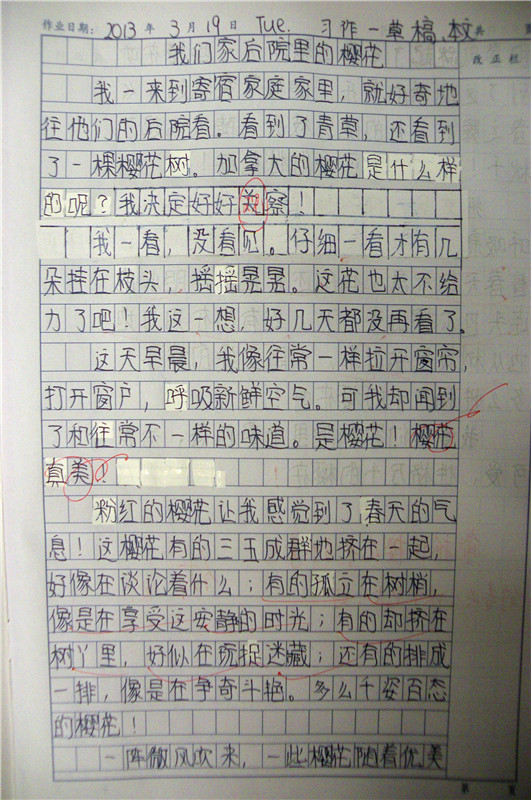 作业日期：2013 年 3 月 19 日 Tue. 习作一草稿、本文 共 页
改正栏
我们家后院里的樱花
我一来到寄宿家庭家里，就好奇地
往他们的后院看。看到了青草，还看到
了一棵樱花树。加拿大的樱花是什么样
的呢？我决定好好观察！
我一看，没看见。仔细一看才有几
朵挂在枝头，摇摇晃晃。这花也太不给
力了吧！我这一想，好几天都没再看了。
这天早晨，我像往常一样拉开窗帘，
打开窗户，呼吸新鲜空气。可我却闻到
了和往常不一样的味道。是樱花！樱花
真美！
粉红的樱花让我感觉到了春天的气
息！这樱花有的三五成群地挤在一起，
好像在谈论着什么；有的孤立在树梢，
像是在享受这安静的时光；有的却挤在
树丫里，好似在玩捉迷藏；还有的排成
一排，像是在争奇斗艳。多么千姿百态
的樱花！
一阵微风吹来，一些樱花随着优美
第 页